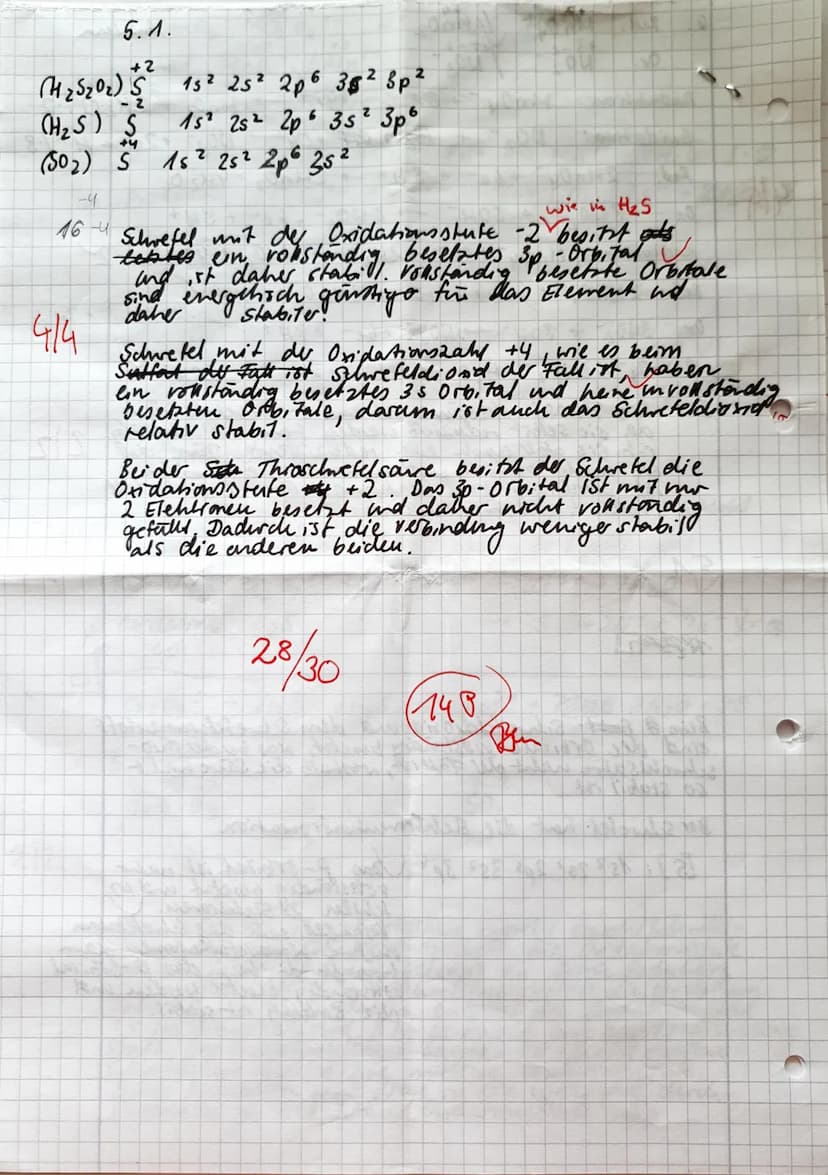 5.1.
+2
(H₂S₂O₂) S 1s² 2s² 2p⁶ 3s² 3p²
-2
(H₂S) S 1s² 2s² 2p⁶ 3s² 3p⁶
+4
(SO₂) S 1s² 2s² 2p⁶ 3s²
-4
16 -4
wie in H₂S
Schwefel mit der Oxidationsstufe -2 besitzt als
letztes ein vollständig besetztes 3p-Orbital
und ist daher stabil. Vollständig besetzte Orbitale
sind energetisch günstiger für das Element und
daher stabiler.
4/4
Schwefel mit der Oxidationszahl +4, wie es beim
Sulfat der Fall ist Schwefeldioxid der Fall ist, haben
ein vollständig besetztes 3s Orbital und keine unvollständig
besetzten Orbitale, darum ist auch das Schwefeldioxid
relativ stabil.
Bei der Thioschwefelsäure besitzt der Schwefel die
Oxidationsstufe +2. Das 3p-Orbital ist mit nur
2 Elektronen besetzt und daher nicht vollständig
gefüllt. Dadurch ist die Verbindung weniger stabil
als die anderen beiden.
28/30
14 P